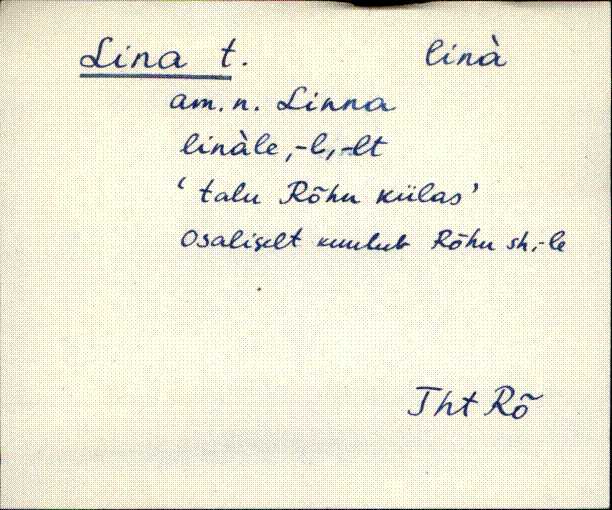 Lina t. linà
am. n. Linna
linàle, -l, -lt
‘talu Rõhu külas’
Osaliselt kuulub Rõhu sh.-le
Tht Rõ